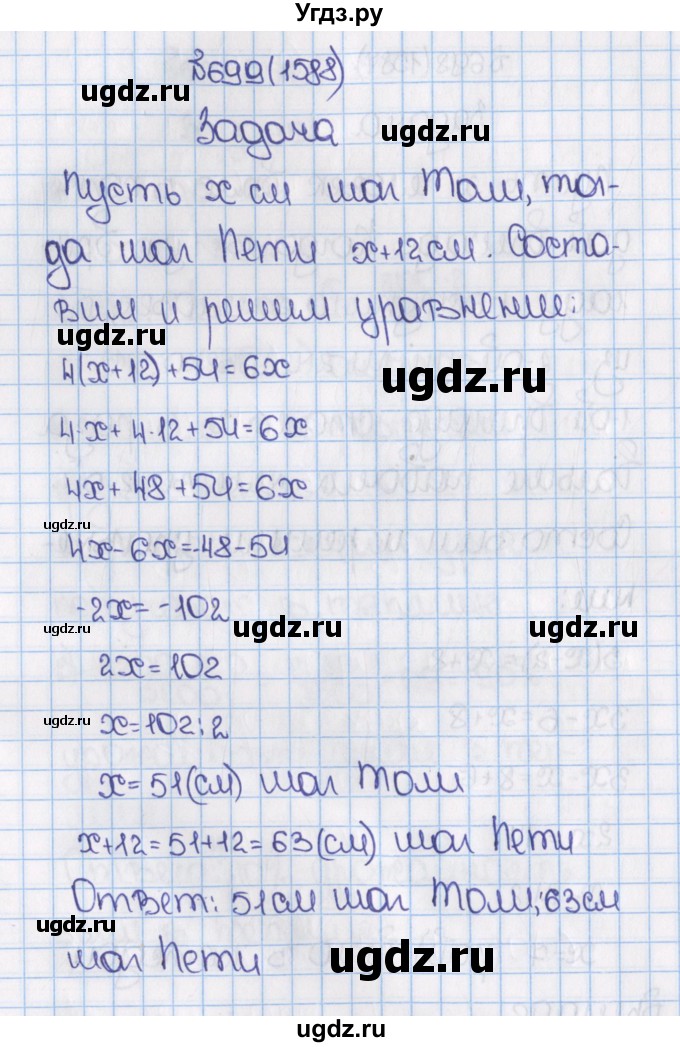 Угдз.ру
№699(1588)
ugdz.ru
Задача
ugdz.ru
Пусть x см шаг Толи, тог-
да шаг Пети x+12 см. Соста-
вим и решим уравнение:
ugdz.ru
4(x+12)+54=6x
ugdz.ru
4·x+4·12+54=6x
4x+48+54=6x
ugdz.ru
4x-6x=-48-54
-2x=-102
ugdz.ru
ugdz.ru
ugdz.ru
2x=102
ugdz.ru
x=102:2
x=51(см) шаг Толи
x+12=51+12=63(см) шаг Пети
Ответ: 51см шаг Толи; 63см
ugdz.ru
шаг Пети
ugdz.ru
ugdz.ru